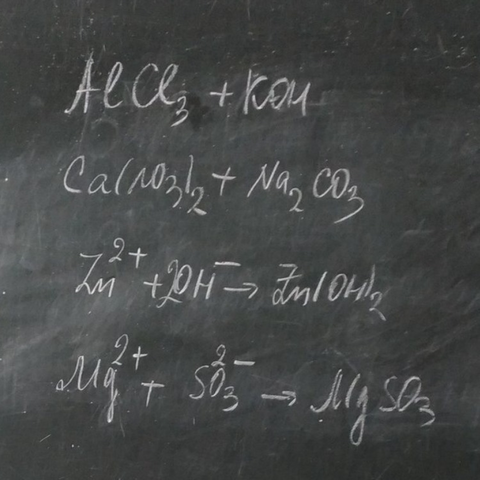 AlCl₃ + KOH
Ca(NO₃)₂ + Na₂CO₃
Zn²⁺ + 2OH⁻ → Zn(OH)₂
Mg²⁺ + SO₃²⁻ → MgSO₃